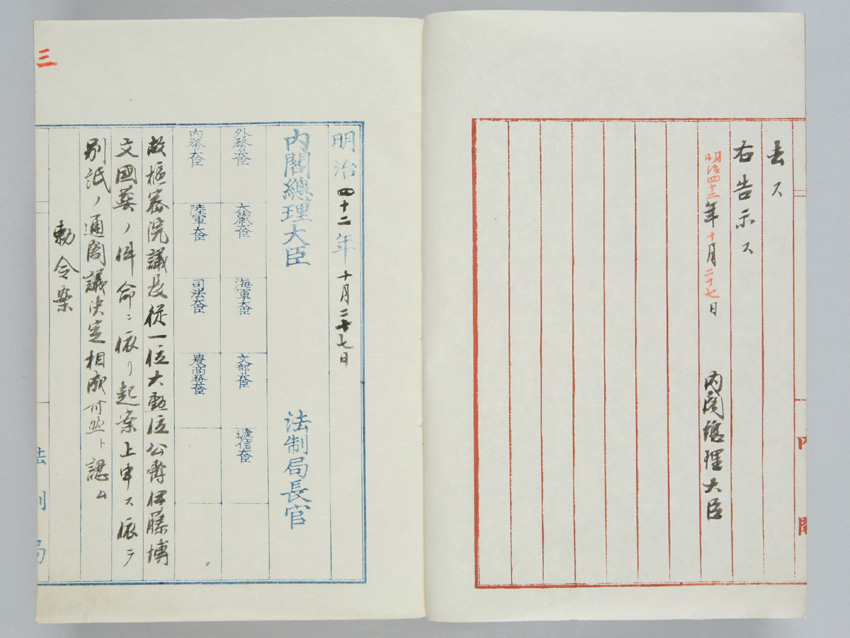 去ス
右告示ス
明治四十二年十月二十七日
内閣總理大臣
内閣
三
明治四十二年十月二十七日
内閣總理大臣
法制局長官
外務大臣
大藏大臣
海軍大臣
文部大臣
遞信大臣
内務大臣
陸軍大臣
司法大臣
農商務大臣
故樞密院議長從一位大勲位公爵伊藤博
文國葬ノ件命ニ依リ起案上申ス依テ
別紙ノ通閣議決定相成可然ト認ム
勅令案
法制局